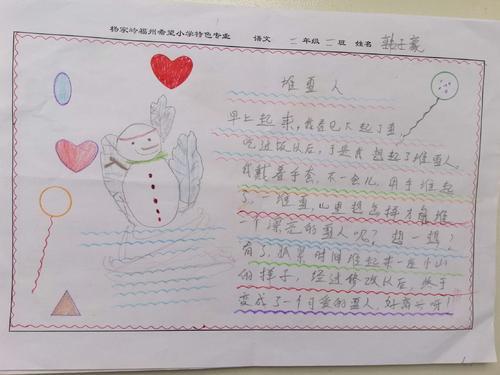 杨家岭福州希望小学特色专业 语文 二年级二班 姓名
堆雪人
早上起来,我看见下起了雪,
吃过饭以后,于是我想起了堆雪人。
我戴着手套,不一会儿,用手堆起
了,一堆雪,心里想怎样才能堆
一个漂亮的雪人呢?想一想?
有了,抓紧时间堆起来一座小山
的样子,经过修改以后,终于
变成了一个可爱的雪人,好高兴呀!